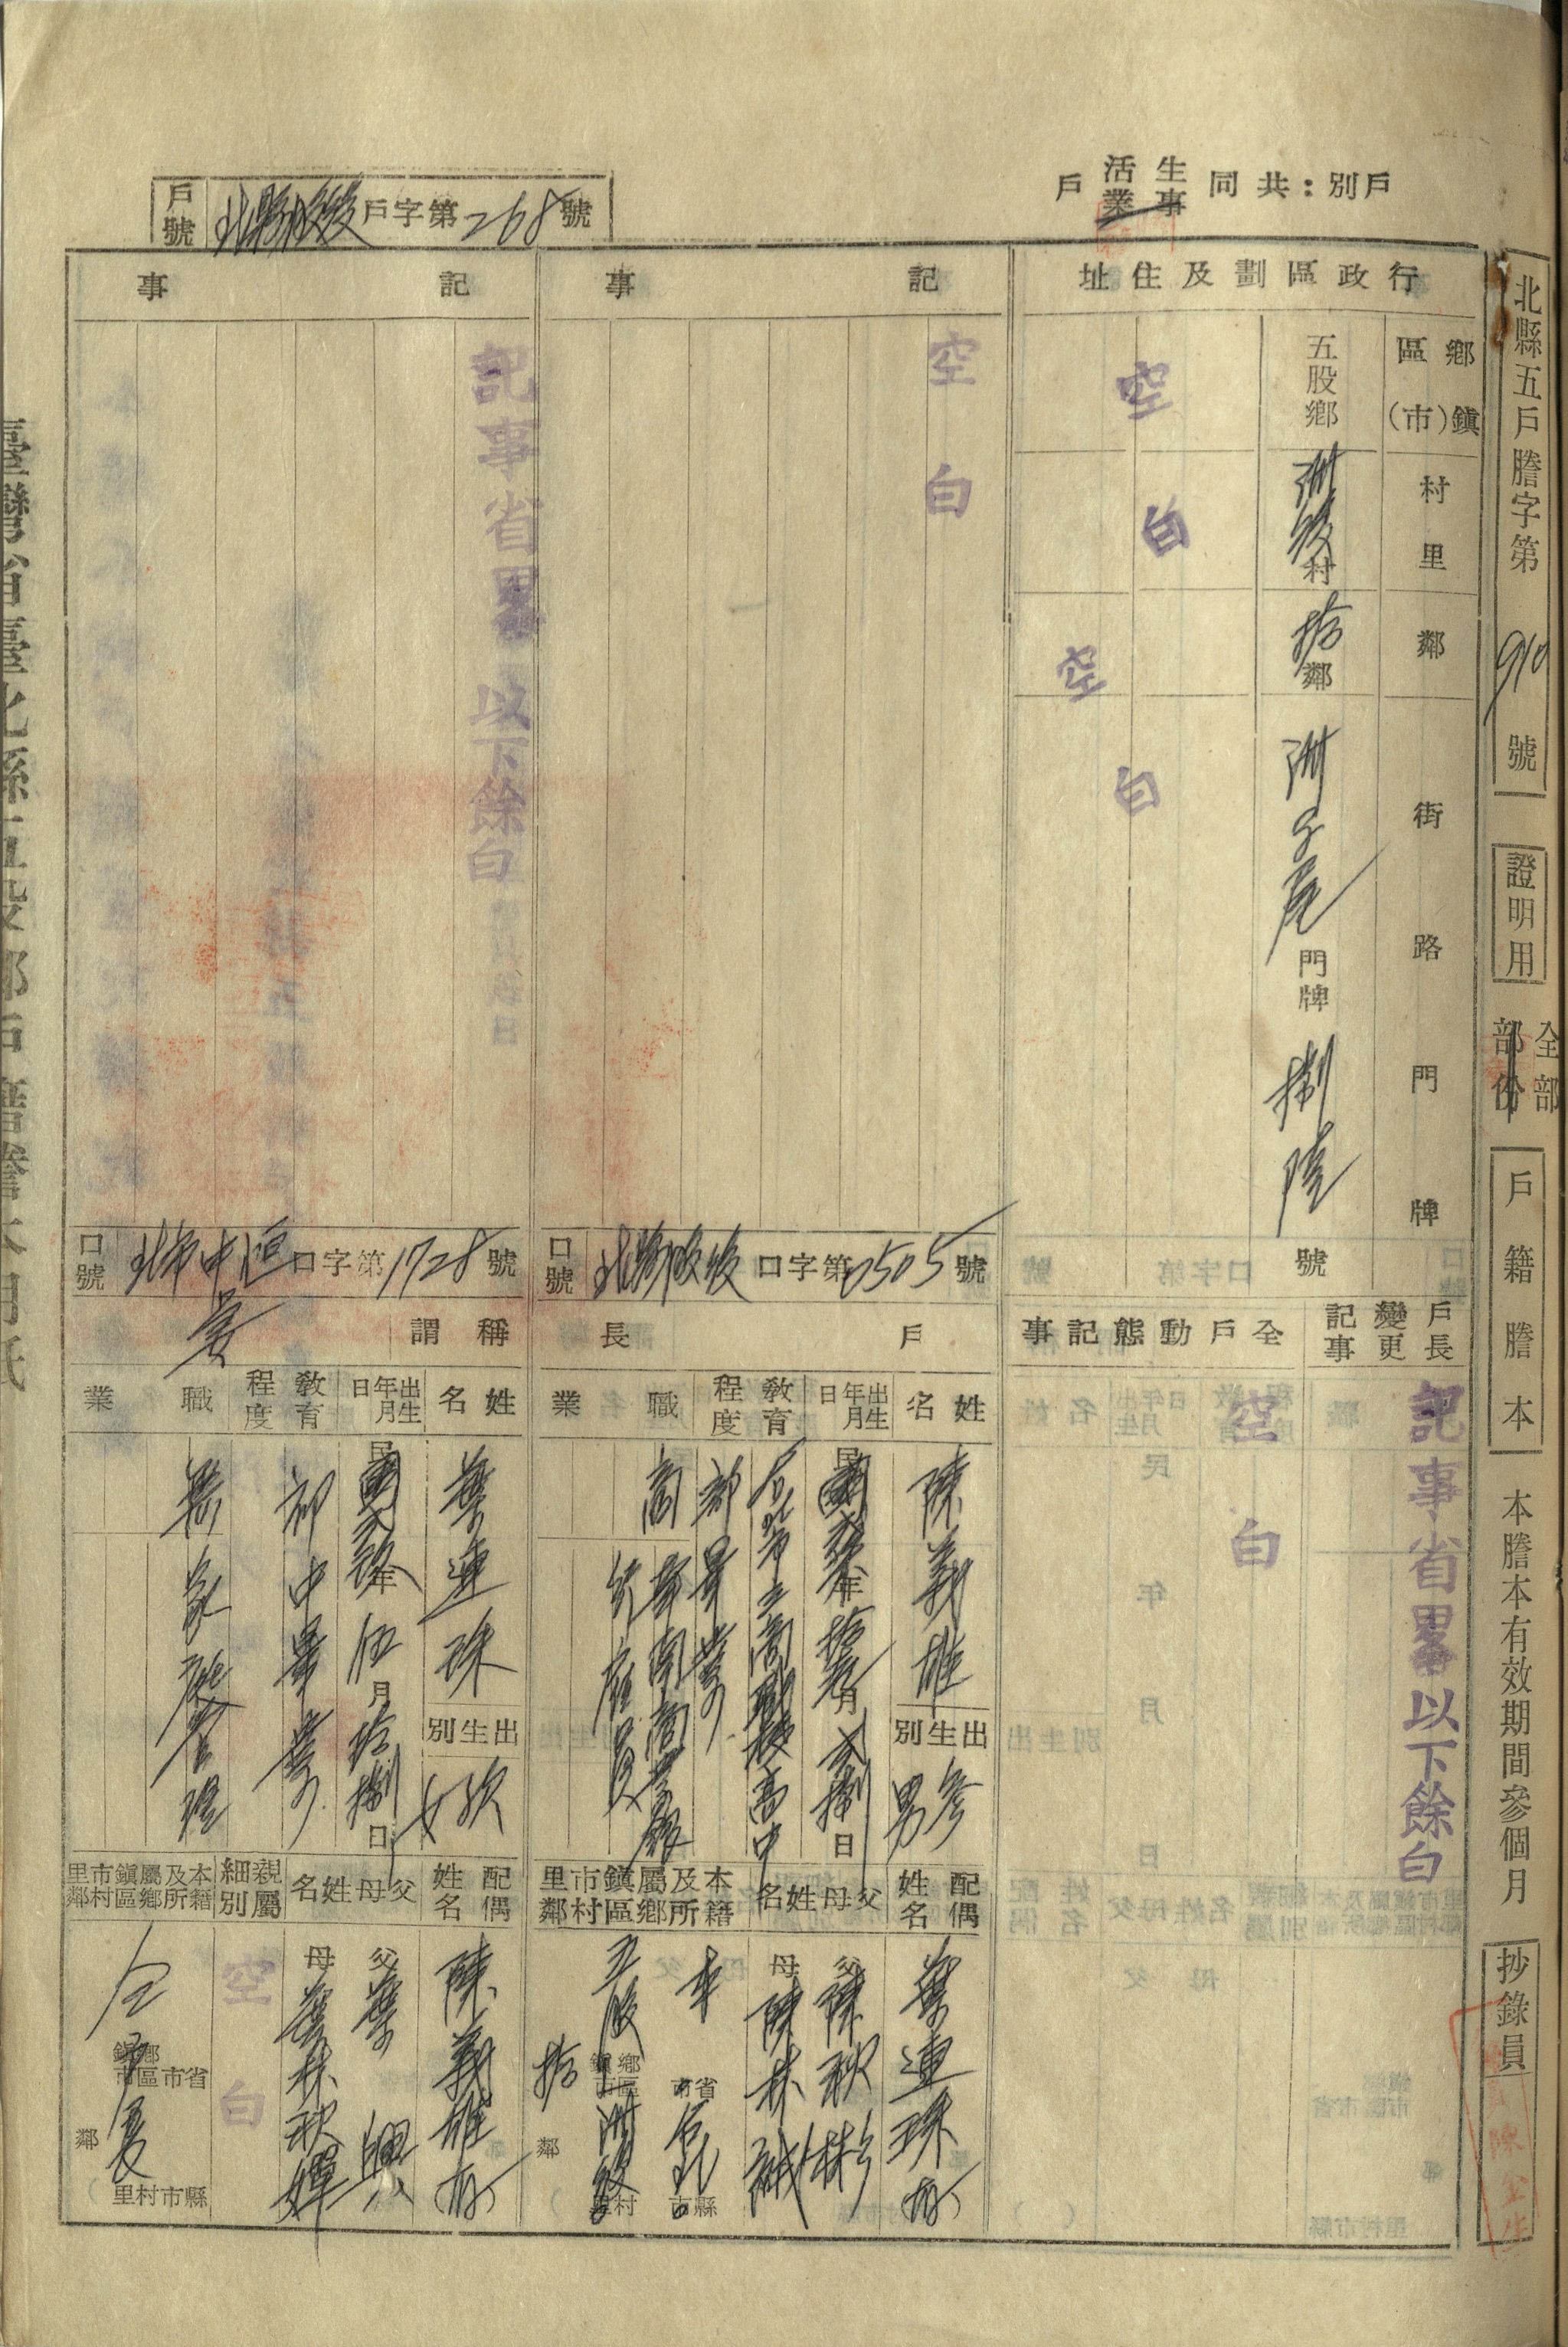 北縣五戶謄字第910號
證明用
全部
部份
戶籍謄本
本謄本有效期間參個月
抄錄員
戶別：共同生活戶
事業
戶號 北縣股後戶字第268號
行政區劃及住址
鄉鎮區(市)
村里
鄰
街路門牌
五股鄉
洲後村
拾鄰
洲子尾門牌捌陸號
空白
空白
戶長變更記事
記事省畧以下餘白
全戶動態記事
空白
記事
空白
口號 北縣股後口字第2505號
戶長
姓名
陳義雄
出生別
參男
出生年月日
民國
年
月
捌日
教育程度
台北市立商職校高中部畢業
職業
商
佐雇員
配偶姓名
葉連珠(存)
父母姓名
父
母
本籍及所屬鄉鎮區市村里鄰
本省市台北縣市
五股鄉鎮區市洲後村里
拾鄰
記事
記事省畧以下餘白
口號 北市中恒口字第1728號
稱謂
妻
姓名
葉連珠
出生別
次女
出生年月日
民國
年伍月拾捌日
教育程度
初中畢業
職業
無
家庭管理
配偶姓名
陳義雄(存)
父母姓名
父葉興
母葉林秋
親屬細別
空白
本籍及所屬鄉鎮區市村里鄰
仝
省市縣市
鄉鎮市區村里
鄰